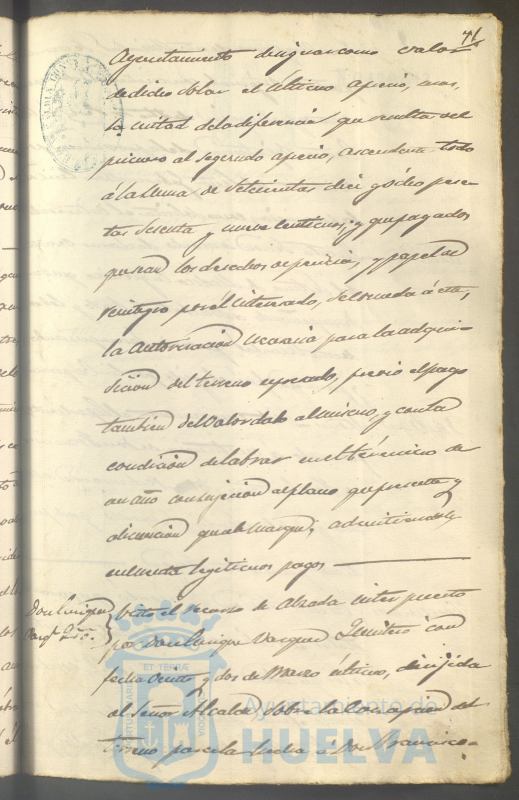 71
Ayuntamiento designar como valor
de dicho solar el último aprecio, mas,
la mitad de la diferencia que resulta del
primero al segundo aprecio, ascendente todo
á la suma de setecientas diez y ocho pese-
tas sesenta y nueve centimos; y que pagados
que sean los derechos periciales, y papel de
reintegro por el interesado, se conceda á este,
la autorización necesaria para la adqui-
sición del terreno expresado, previo el pago
tambien del valor dado al mismo, y con la
condición de labrar en el término de
un año con sujecion al plano que presente y
alineación que se marque; admitiendosele
en cuenta legitimos pagos
Don Enrique
Vazqz
Visto el recurso de Alzada interpuesto
por Don Enrique Vazquez Jimenez con
fecha veinte y dos de Marzo último, dirijida
al Señor Alcalde sobre la concesion del
terreno parcela hecha á Don Francisco
Ayuntamiento de
HUELVA